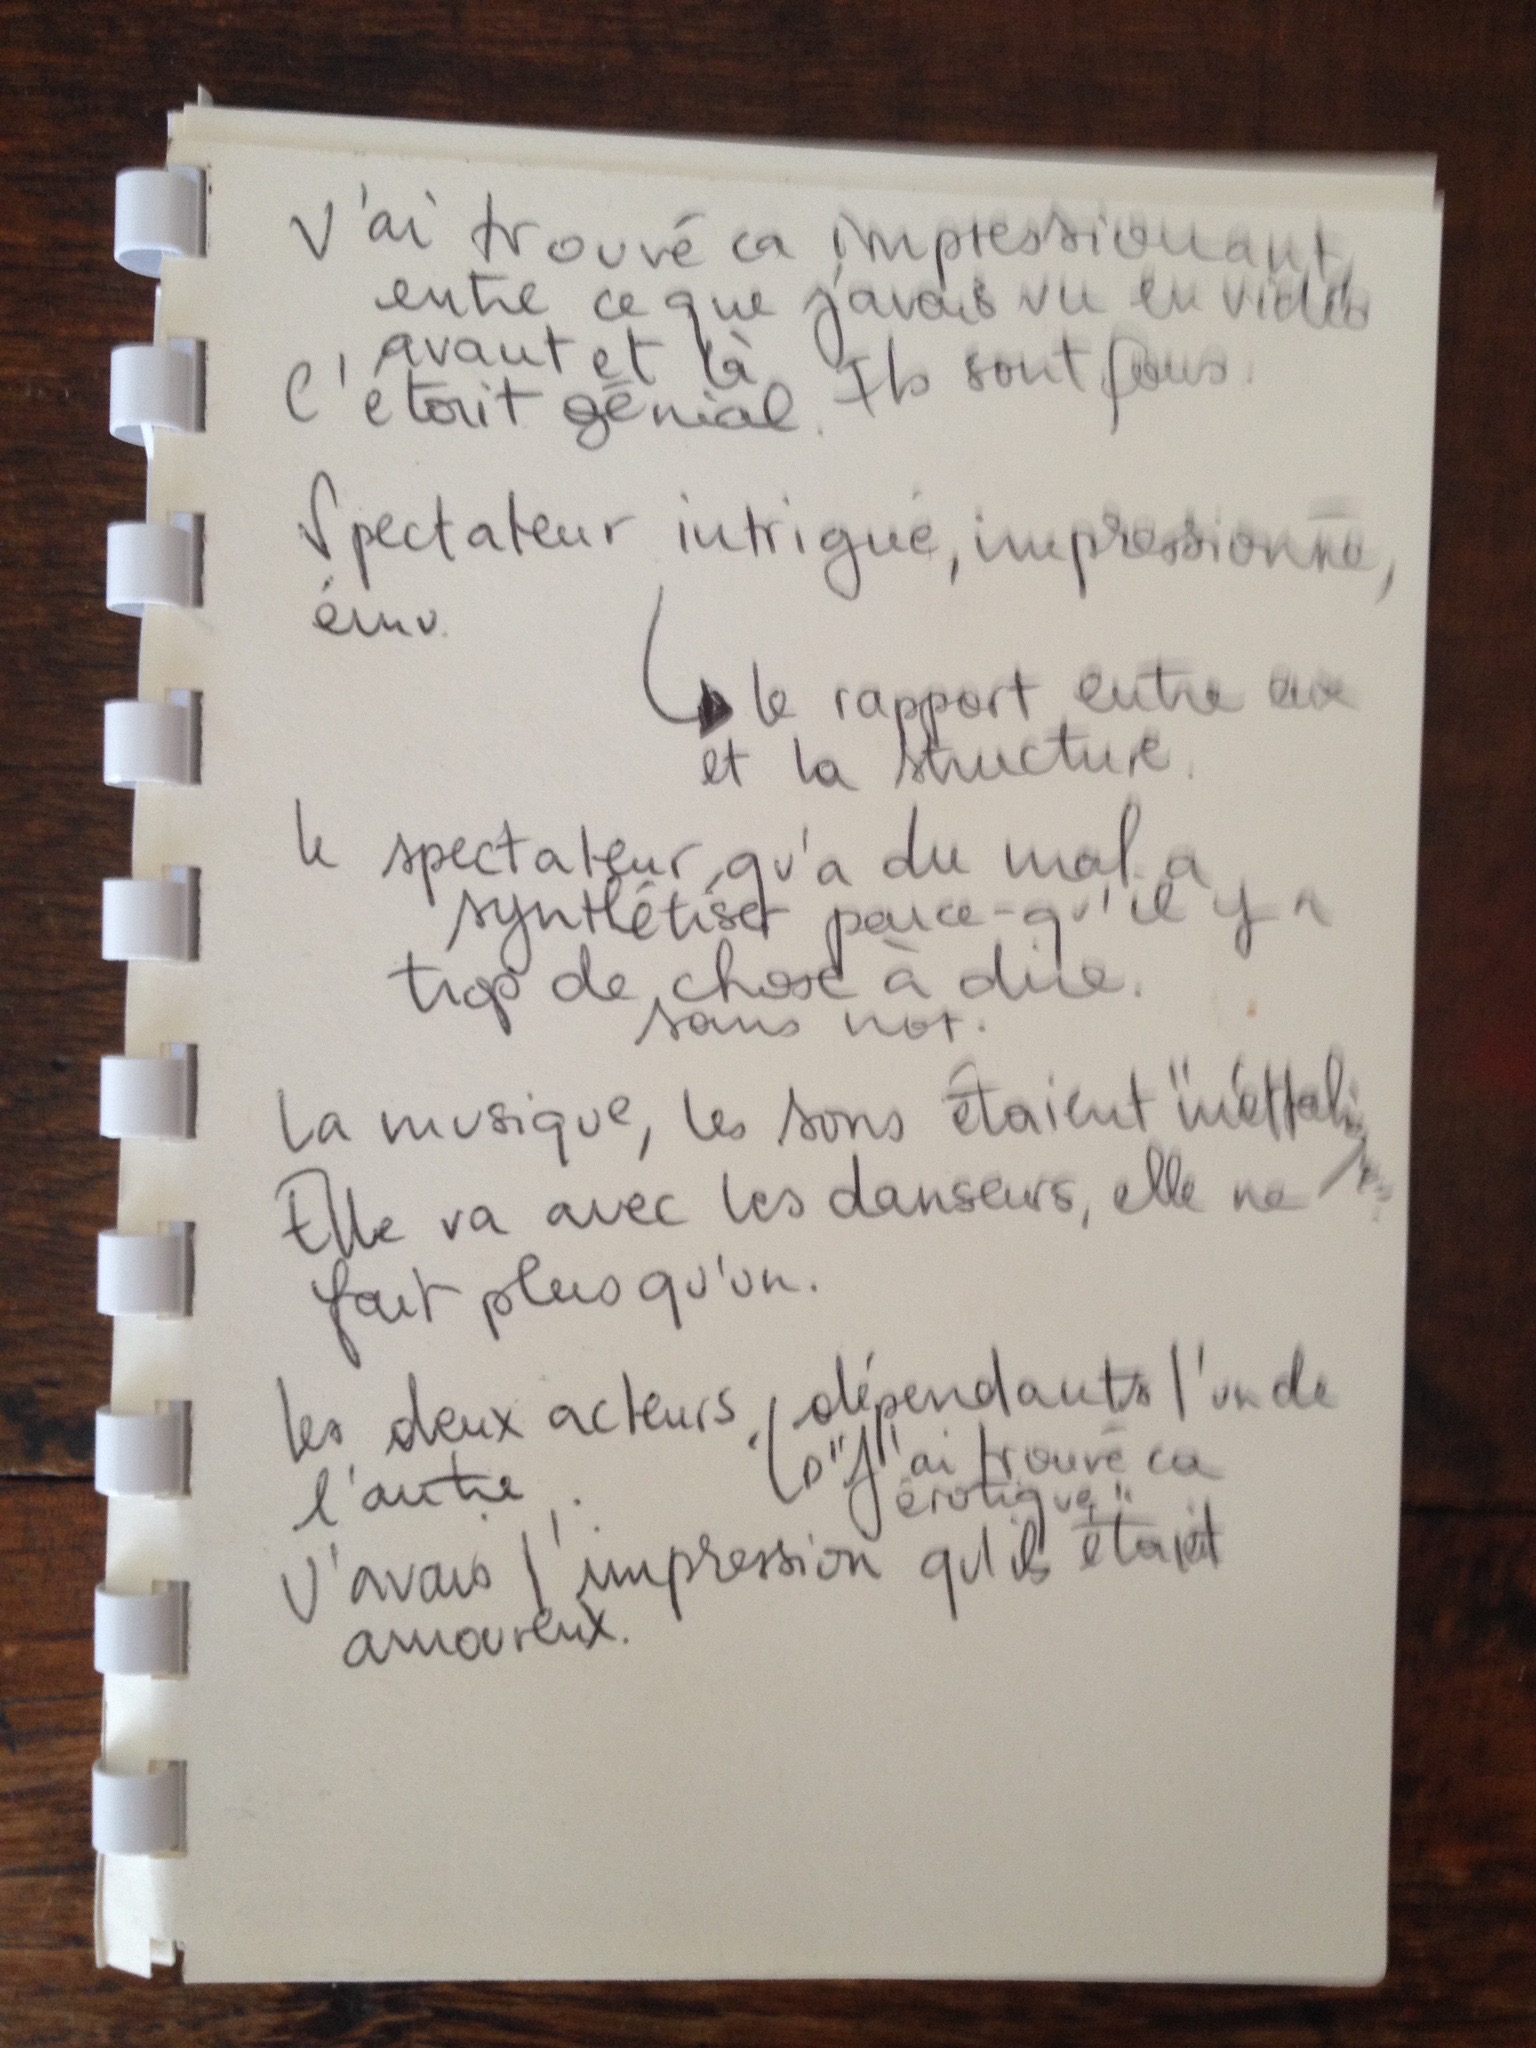 J'ai trouvé ca impressionant,
entre ce que j'avais vu en vidéo
avant et là
C'était génial. Ils sont fous.
Spectateur intrigué, impressionné,
ému.
le rapport entre eux
et la structure.
le spectateur qu'a du mal a
synthétiser parce-qu'il y a
trop de chose à dire.
sans mot.
La musique, les sons étaient "méttaliques"
Elle va avec les danseurs, elle ne
fait plus qu'un.
Les deux acteurs, dépendants l'un de
l'autre.
"J'ai trouvé ca
érotique"
J'avais l'impression qu'ils était
amoureux.